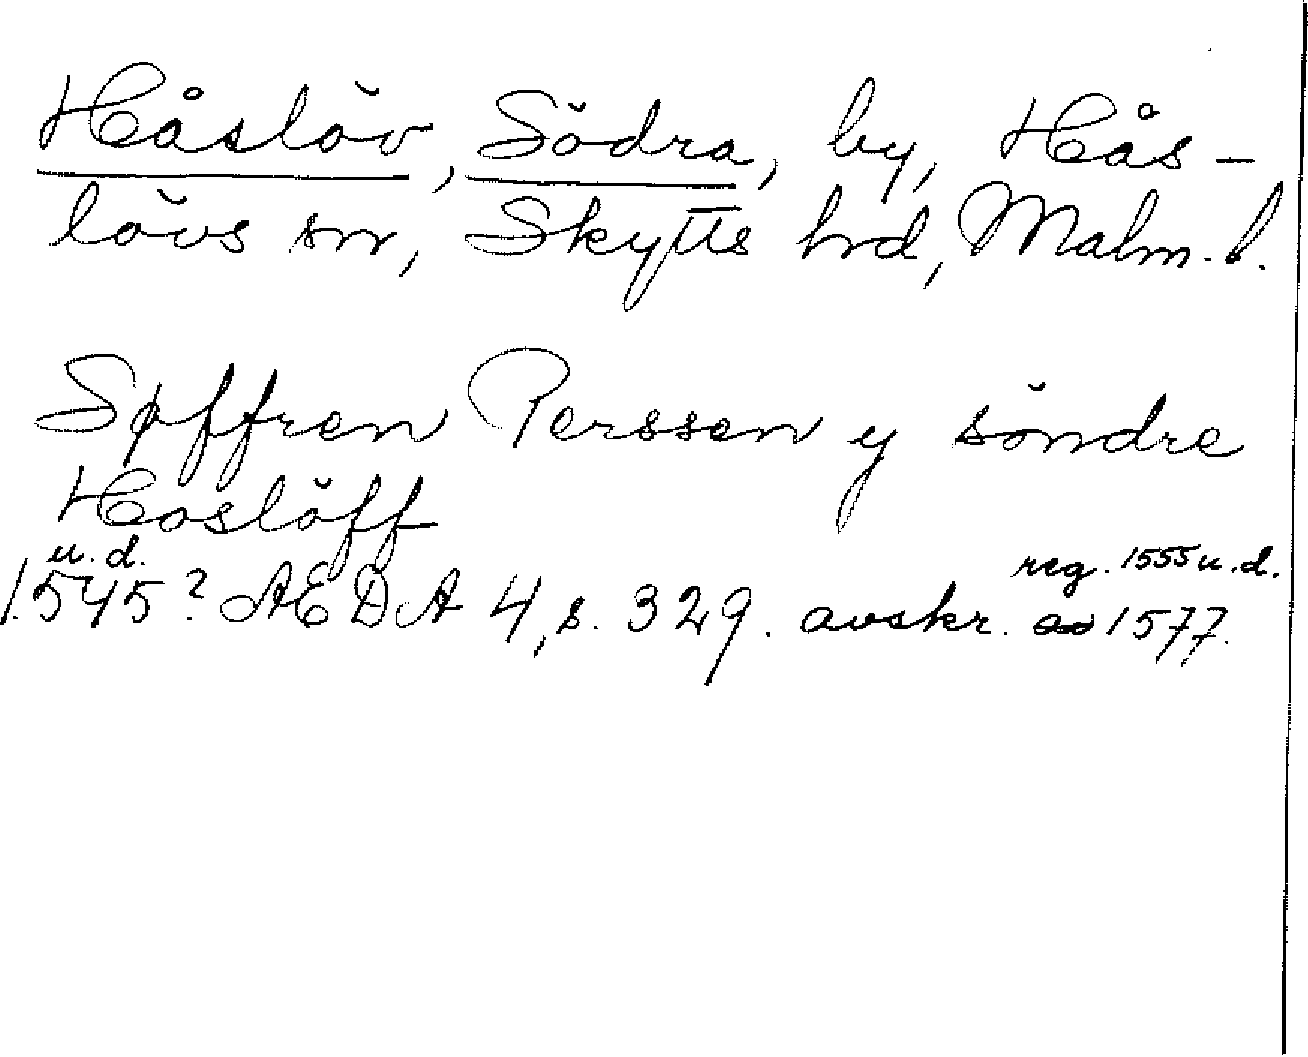 Håslöv, Södra, by, Hås-
lövs sn, Skytts hrd, Malm. l.
Søffren Perssen y söndre
Hoslöff
u. d.
1545? AEDA 4, s. 329. avskr. 1577.
reg. 1555 u. d.